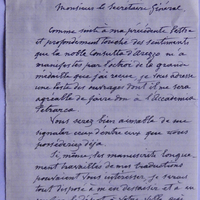 Monsieur le Secrétaire Général,
Comme suite à ma précédente lettre
et profondément touché des sentiments
que la noble Consulta d'Arezzo m'a
manifestés par l'octroi de la grande
médaille que j'ai reçue, je vous adresse
une liste des ouvrages dont il me sera
agréable de faire don à l'Accademia
Petrarca.
Vous serez bien aimable de me
signaler ceux d'entre eux que vous
possédez déjà.
Si, même, les manuscrits longue
ment travaillés de mes traductions
pouvaient vous intéresser, je serais
tout disposé à m'en dessaisir et à en